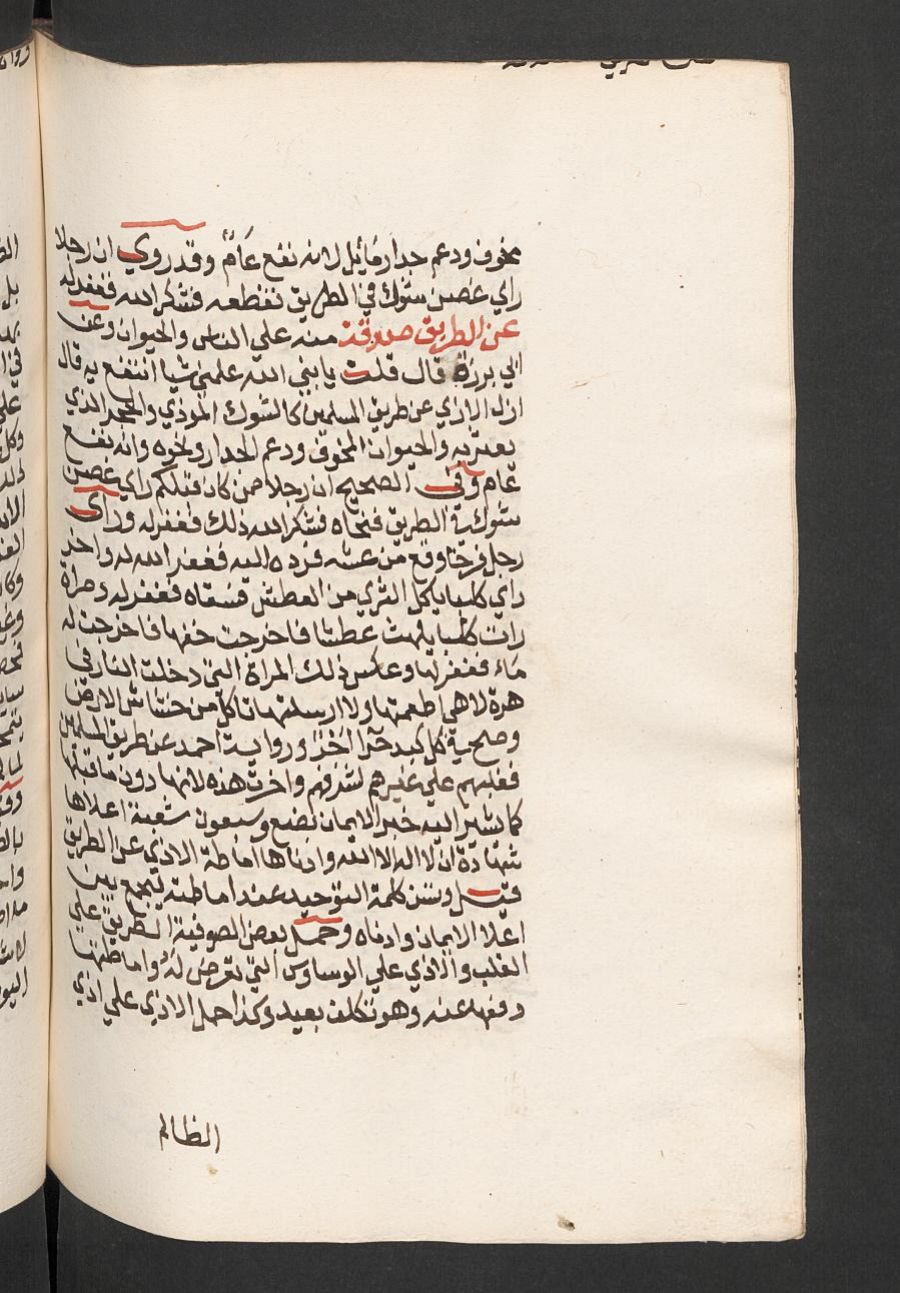 مخوف ودعم جدار مايل لانه نفع عام وقد روي ان رجلا
راي غصن شوك في الطريق فقطعه فشكر الله فغفر له
عن الطريق صدقة منه علي الناس والحيوان وعن
ابي برزة قال قلت يا نبي الله علمني شيا انتفع به قال
ازل الاذي عن طريق المسلمين كالشوك الموذي والحجر الذي
يعثر به والحيوان المخوف ودعم الجدار ونحوه وانه نفع
عام وفي الصحيح ان رجلا ممن كان قبلكم راي غصن
شوك في الطريق فنحاه فشكر الله ذلك فغفر له وراى
رجل فرخا وقع من عشه فرده اليه فغفر الله له واخر
راي كلبا ياكل الثري من العطش فسقاه فغفر له ومراة
رات كلبا يلهث عطشا فاخرجت خفها فاخرجت له
ماء فغفر لها وعكس ذلك المراة التي دخلت النار في
هرة لا هي اطعمتها ولا ارسلتها تاكل من خشاش الارض
وصح في كل كبد حرا اجر ورواية احمد عن طريق المسلمين
فغلبهم علي غيرهم لشرفهم واخرت هذه لانها دون ما قبلها
كما يشير اليه خبر الايمان بضع وسبعون شعبة اعلاها
شهادة ان لا اله الا الله وادناها اماطة الاذي عن الطريق
قيل وسن كلمة التوحيد عند اماطته ليجمع بين
اعلا الايمان وادناه وحمل بعض الصوفية الطريق علي
القلب والاذي علي الوساوس التي تعرض له واماطتها
دفعها عنه وهو تكلف بعيد وكذا حمل الاذي علي اذي
الظالم